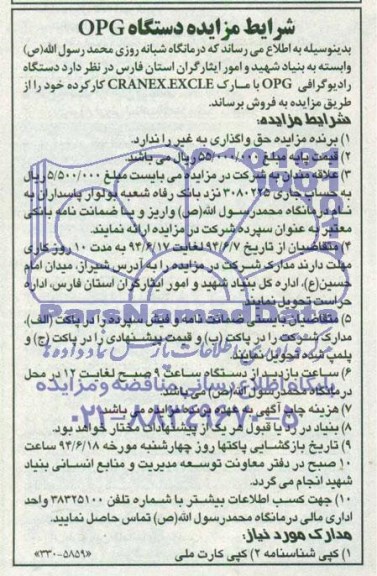 شرایط مزایده دستگاه OPG
بدینوسیله به اطلاع می رساند که درمانگاه شبانه روزی محمد رسول الله(ص)
وابسته به بنیاد شهید و امور ایثارگران استان فارس در نظر دارد دستگاه
رادیوگرافی OPG با مارک CRANEX.EXCLE کارکرده خود را از
طریق مزایده به فروش برساند.
شرایط مزایده:
۱) برنده مزایده حق واگذاری به غیر را ندارد.
۲) قیمت پایه مبلغ ۵۵/۰۰۰/۰۰۰ ریال می باشد.
۳) علاقه مندان به شرکت در مزایده می بایست مبلغ ۵/۵۰۰/۰۰۰ ریال
به حساب جاری ۳۰۸۰۲۲۵ نزد بانک رفاه شعبه بولوار پاسداران به
نام درمانگاه محمدرسول الله(ص) واریز و یا ضمانت نامه بانکی
معتبر به عنوان سپرده شرکت در مزایده ارائه نمایند.
۴) متقاضیان از تاریخ ۹۴/۶/۷ لغایت ۹۴/۶/۱۷ به مدت ۱۰ روز کاری
مهلت دارند مدارک شرکت در مزایده را به آدرس شیراز، میدان امام
حسین(ع)، اداره کل بنیاد شهید و امور ایثارگران استان فارس، اداره
حراست تحویل نمایند.
۵) متقاضیان بایستی ضمانت نامه و فیش سپرده را در پاکت (الف)،
مدارک شرکت را در پاکت (ب) و قیمت پیشنهادی را در پاکت (ج) و
پلمپ شده تحویل نمایند.
۶) ساعت بازدید از دستگاه ساعت ۹ صبح لغایت ۱۲ در محل
درمانگاه محمدرسول الله(ص) می باشد.
۷) هزینه چاپ آگهی به عهده برنده مزایده می باشد.
۸) بنیاد در رد یا قبول هر یک از پیشنهادات مختار خواهد بود.
۹) تاریخ بازگشایی پاکتها روز چهارشنبه مورخه ۹۴/۶/۱۸ ساعت
۱۰ صبح در دفتر معاونت توسعه مدیریت و منابع انسانی بنیاد
شهید انجام می گردد.
۱۰) جهت کسب اطلاعات بیشتر با شماره تلفن ۳۸۳۲۵۱۰۰ واحد
اداری مالی درمانگاه محمدرسول الله(ص) تماس حاصل نمایید.
مدارک مورد نیاز:
۱) کپی شناسنامه ۲) کپی کارت ملی
«۳۳۰-۵۸۵۹»
ParsNamadData
پایگاه اطلاع رسانی مناقصه و مزایده
۰۲۱-۸۸۳۴۹۶۷۰-۵